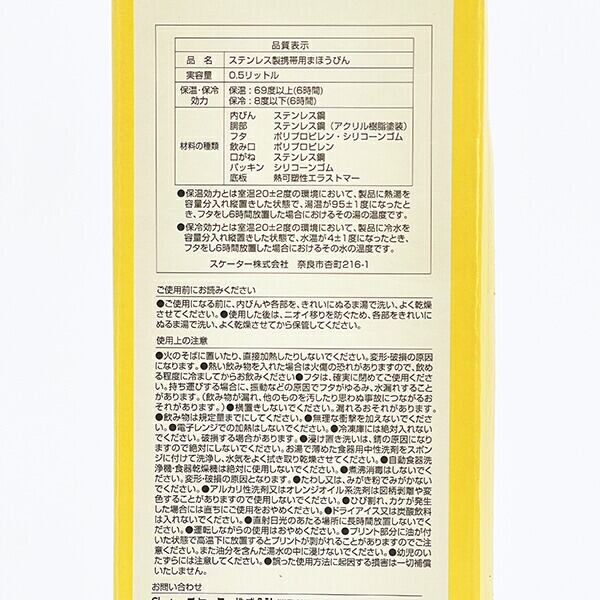 品質表示
品 名 ステンレス製携帯用まほうびん
実容量 0.5リットル
保温・保冷効力 保温：69度以上(6時間)
保冷：8度以下(6時間)
材料の種類
内びん ステンレス鋼
胴部 ステンレス鋼（アクリル樹脂塗装）
フタ ポリプロピレン・シリコーンゴム
飲み口 ポリプロピレン
口がね ステンレス鋼
パッキン シリコーンゴム
底板 熱可塑性エラストマー
●保温効力とは室温20±2度の環境において、製品に熱湯を
容量分入れ縦置きした状態で、湯温が95±1度になったと
き、フタをし6時間放置した場合におけるその湯の温度です。
●保冷効力とは室温20±2度の環境において、製品に冷水を
容量分入れ縦置きした状態で、水温が4±1度になったとき、
フタをし6時間放置した場合におけるその水の温度です。
スケーター株式会社 奈良市杏町216-1
ご使用前にお読みください
●ご使用になる前に、内びんや各部を、きれいにぬるま湯で洗い、よく乾燥
させてください。●使用した後は、ニオイ移りを防ぐため、各部をきれいに
ぬるま湯で洗い、よく乾燥させてから保管してください。
使用上の注意
●火のそばに置いたり、直接加熱したりしないでください。変形・破損の原因
になります。●熱い飲み物を入れた場合は火傷の恐れがありますので、飲め
る程度に冷ましてからお飲みください●フタは、確実に閉めてご使用くださ
い。持ち運びする場合に、振動などの原因でフタがゆるみ、水漏れすること
があります。（飲み物が漏れ、他のものを汚したり思わぬ事故につながるお
それがあります。）●横置きしないでください。漏れるおそれがあります。
●飲み物は規定量までにしてください。●無理な衝撃を加えないでくださ
い。●電子レンジでの加熱はしないでください。●冷凍庫には絶対入れない
でください。破損する場合があります。●浸け置き洗いは、錆の原因になり
ますので絶対にしないでください。お湯で薄めた食器用中性洗剤をスポン
ジに付けて洗浄し、水気をよく拭き取り乾燥させてください。●自動食器洗
浄機・食器乾燥機は絶対に使用しないでください。●煮沸消毒はしないでく
ださい。変形・破損の原因となります。●たわし又は、みがき粉でみがかない
でください。●アルカリ性洗剤又はオレンジオイル系洗剤は図柄剥離や変
色することがありますので使用しないでください。●ひび割れ、カケが発生
した場合には直ちにご使用をおやめください。●ドライアイス又は炭酸飲料
は入れないでください。●直射日光のあたる場所に長時間放置しないでく
ださい。●運転しながらの使用はおやめください。●プリント部分に油が付
いた状態で高温下に放置するとプリントが剥がれることがありますのでご注
意ください。また油分を含んだ湯水の中に浸けないでください。●幼児のい
たずらには注意してください。●誤った使用方法に起因する損害は一切補償
いたしません。
お問い合わせ